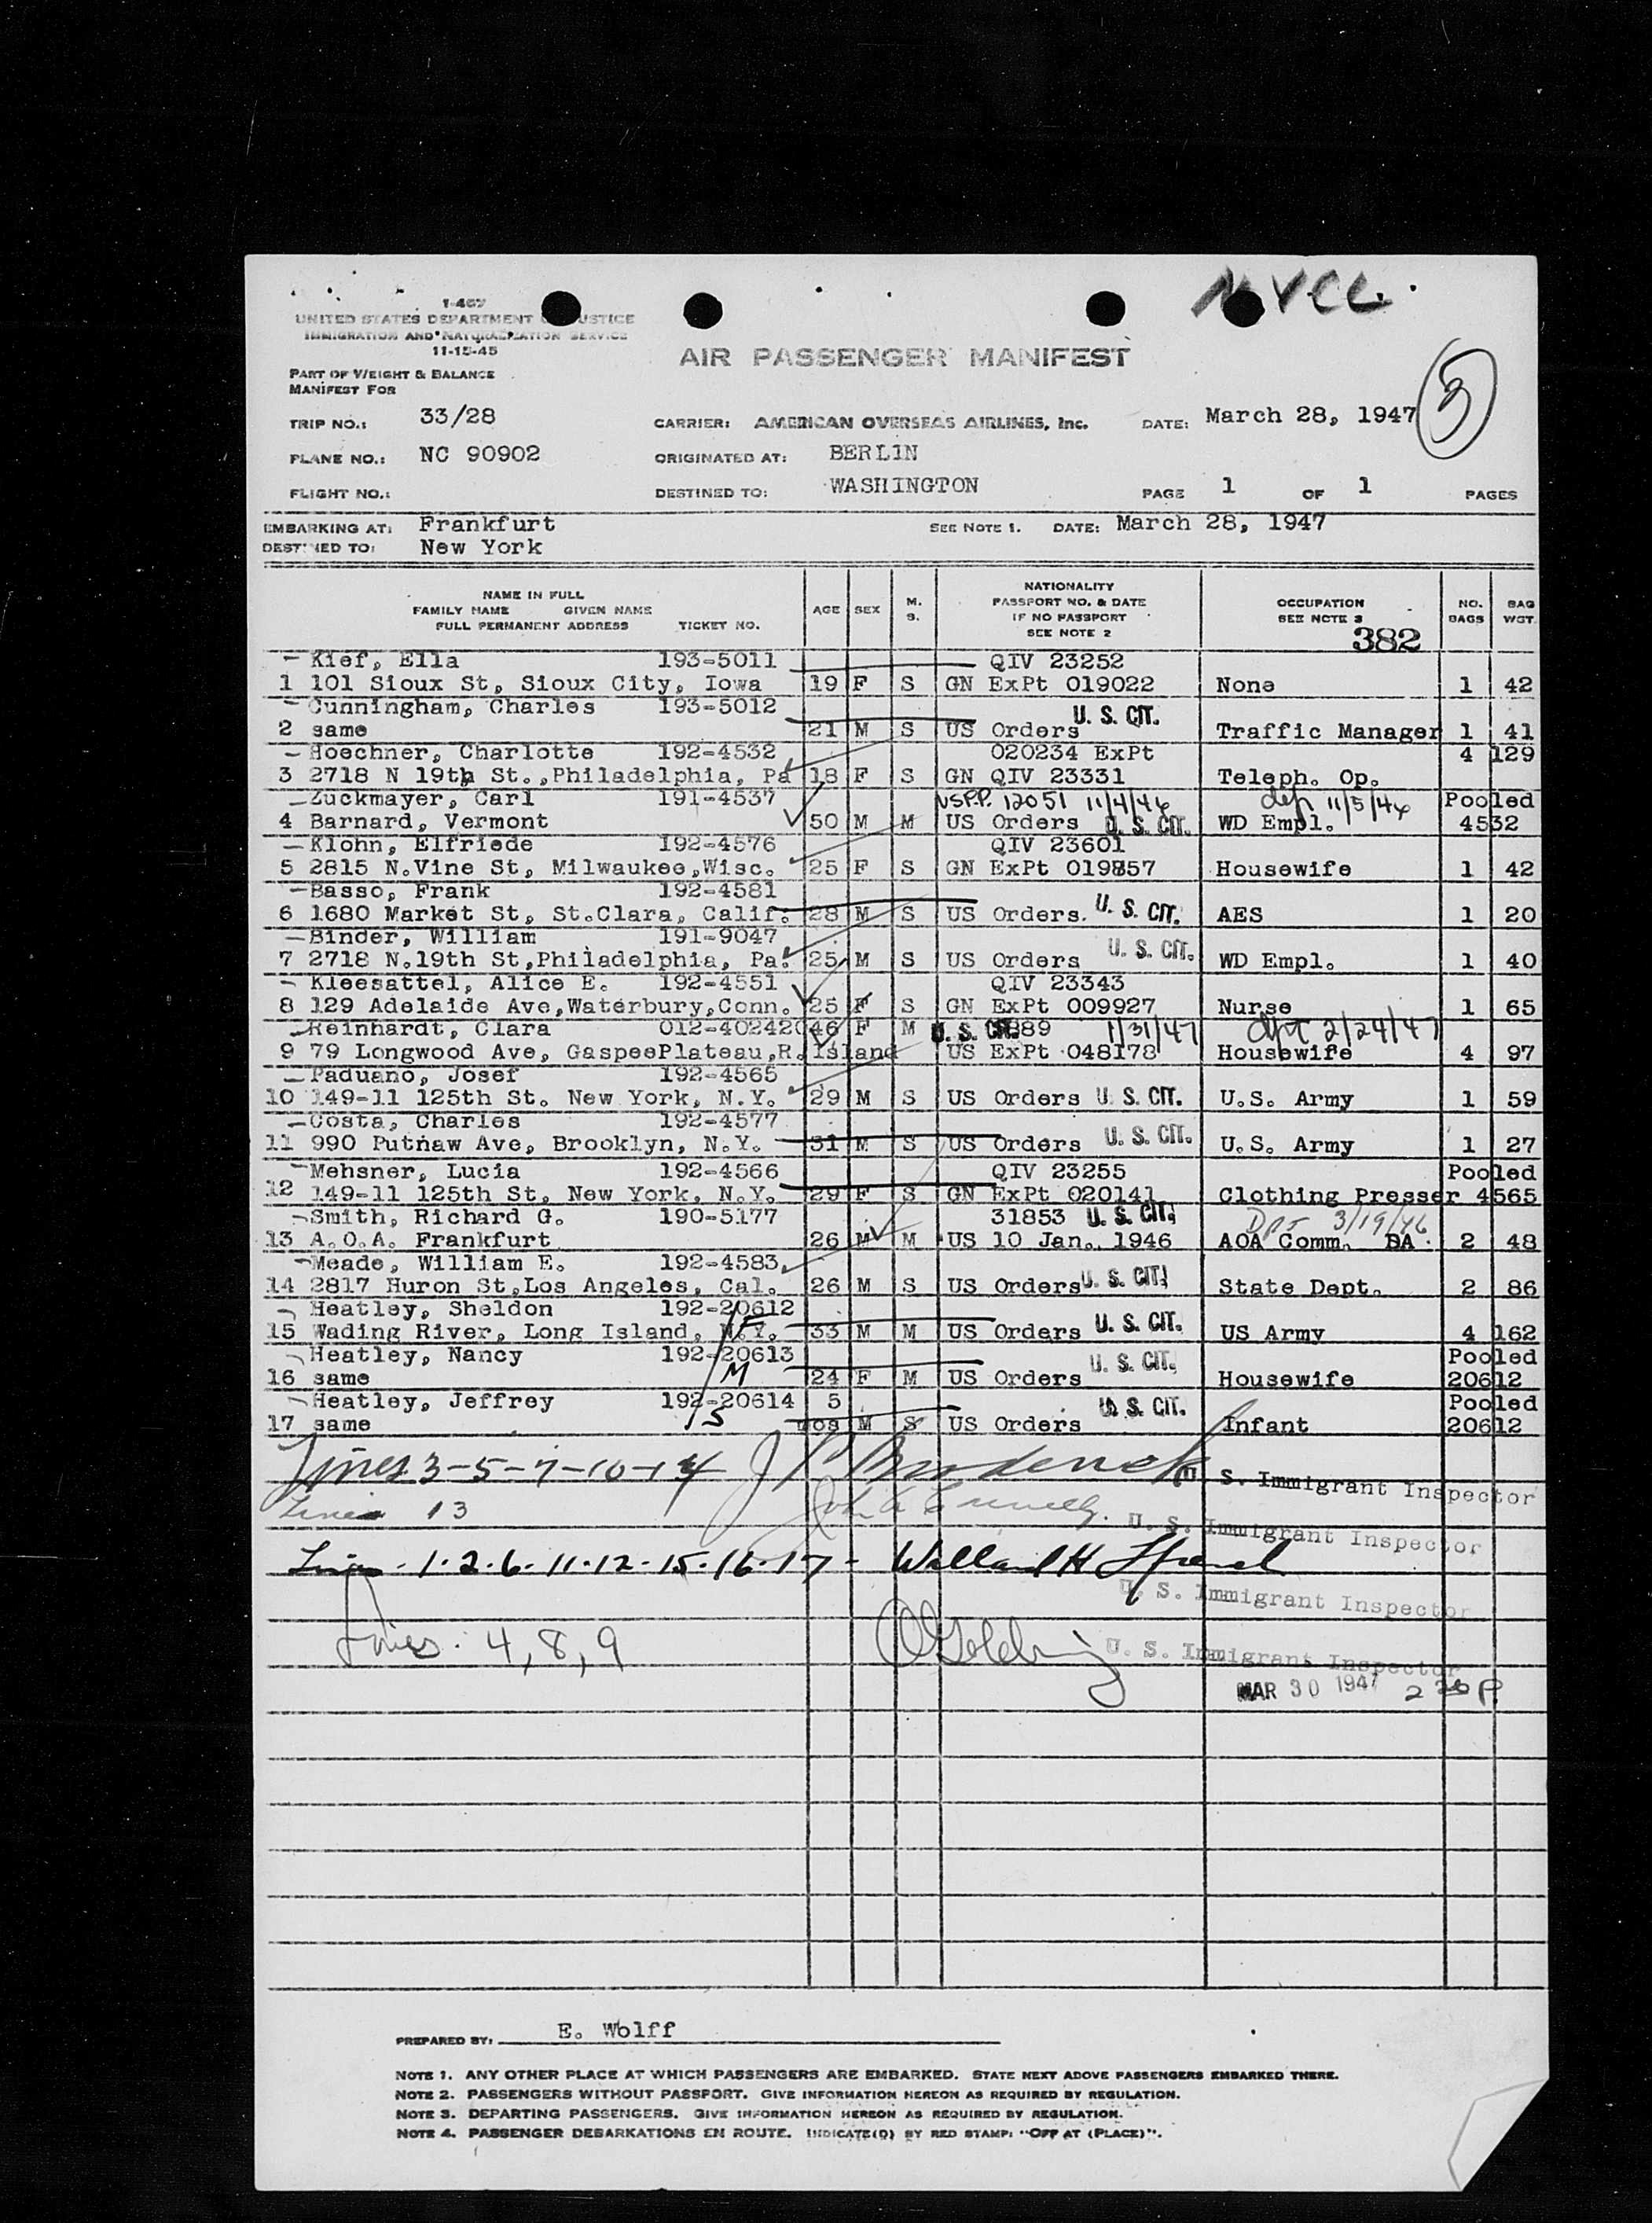 NYCC.
1-467
UNITED STATES DEPARTMENT JUSTICE
IMMIGRATION AND NATURALIZATION SERVICE
11-15-45
AIR PASSENGER MANIFEST
PART OF WEIGHT & BALANCE
MANIFEST FOR
3
TRIP NO.: 33/28 CARRIER: AMERICAN OVERSEAS AIRLINES, Inc. DATE: March 28, 1947
PLANE NO.: NC 90902 ORIGINATED AT: BERLIN
FLIGHT NO.: DESTINED TO: WASHINGTON PAGE 1 OF 1 PAGES
EMBARKING AT: Frankfurt SEE NOTE 1. DATE: March 28, 1947
DESTINED TO: New York
NAME IN FULL
FAMILY NAME GIVEN NAME
FULL PERMANENT ADDRESS TICKET NO.
AGE SEX M. S.
NATIONALITY
PASSPORT NO. & DATE
IF NO PASSPORT
SEE NOTE 2
OCCUPATION
SEE NOTE 3
NO. BAGS
BAG WGT.
382
Kief, Ella 193-5011 QIV 23252
1 101 Sioux St, Sioux City, Iowa 19 F S GN ExPt 019022 None 1 42
Cunningham, Charles 193-5012 U. S. CIT.
2 same 21 M S US Orders Traffic Manager 1 41
Hoechner, Charlotte 192-4532 020234 ExPt 4 129
3 2718 N 19th St.,Philadelphia, Pa 18 F S GN QIV 23331 Teleph. Op.
Zuckmayer, Carl 191-4537 USP.P. 12051 11/4/46 dep 11/5/46 Pooled
4 Barnard, Vermont 50 M M US Orders U. S. CIT. WD Empl. 4532
Klohn, Elfriede 192-4576 QIV 23601
5 2815 N.Vine St, Milwaukee,Wisc. 25 F S GN ExPt 019857 Housewife 1 42
Basso, Frank 192-4581
6 1680 Market St, St.Clara, Calif. 28 M S US Orders. U. S. CIT. AES 1 20
Binder, William 191-9047
7 2718 N.19th St,Philadelphia, Pa. 25 M S US Orders U. S. CIT. WD Empl. 1 40
Kleesattel, Alice E. 192-4551 QIV 23343
8 129 Adelaide Ave,Waterbury,Conn. 25 F S GN ExPt 009927 Nurse 1 65
Reinhardt, Clara 012-402420 46 F M U. S. CIT. 889 1/31/47 dpt 2/24/47
9 79 Longwood Ave, GaspeePlateau,R.Island US ExPt 048178 Housewife 4 97
Paduano, Josef 192-4565
10 149-11 125th St. New York, N.Y. 29 M S US Orders U. S. CIT. U.S. Army 1 59
Costa, Charles 192-4577
11 990 Putnaw Ave, Brooklyn, N.Y. 31 M S US Orders U. S. CIT. U.S. Army 1 27
Mehsner, Lucia 192-4566 QIV 23255 Pooled
12 149-11 125th St, New York, N.Y. 29 F S GN ExPt 020141 Clothing Presser 4565
Smith, Richard G. 190-5177 31853 U. S. CIT. Dpt 3/19/46
13 A.O.A. Frankfurt 26 M M US 10 Jan. 1946 AOA Comm. DA 2 48
Meade, William E. 192-4583
14 2817 Huron St,Los Angeles, Cal. 26 M S US Orders U. S. CIT. State Dept. 2 86
Heatley, Sheldon 192-20612
15 Wading River, Long Island, N.Y. F 33 M M US Orders U. S. CIT. US Army 4 162
Heatley, Nancy 192-20613 Pooled
16 same M 24 F M US Orders U. S. CIT. Housewife 20612
Heatley, Jeffrey 192-20614 5 Pooled
17 same S mos M S US Orders U. S. CIT. Infant 20612
Lines 3-5-7-10-14 J P Broderick U. S. Immigrant Inspector
Lines 13 John U. S. Immigrant Inspector
Lines - 1-2-6-11-12-15-16-17 - Willard H U. S. Immigrant Inspector
Lines: 4, 8, 9 U. S. Immigrant Inspector
MAR 30 1947 2 P.
PREPARED BY: E. Wolff
NOTE 1. ANY OTHER PLACE AT WHICH PASSENGERS ARE EMBARKED. STATE NEXT ABOVE PASSENGERS EMBARKED THERE.
NOTE 2. PASSENGERS WITHOUT PASSPORT. GIVE INFORMATION HEREON AS REQUIRED BY REGULATION.
NOTE 3. DEPARTING PASSENGERS. GIVE INFORMATION HEREON AS REQUIRED BY REGULATION.
NOTE 4. PASSENGER DEBARKATIONS EN ROUTE. INDICATE(D) BY RED STAMP: "OFF AT (PLACE)".